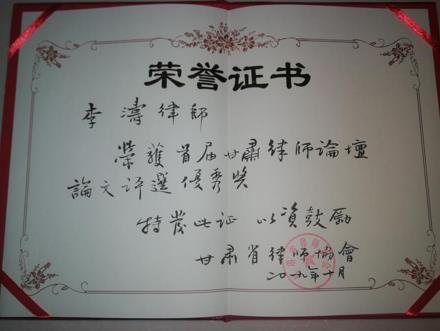 荣誉证书
李濤律師
榮獲首届甘肅律師論壇
論文评選優秀奬
特发此证 以资鼓励
甘肅省律师协會
二〇一九年十月